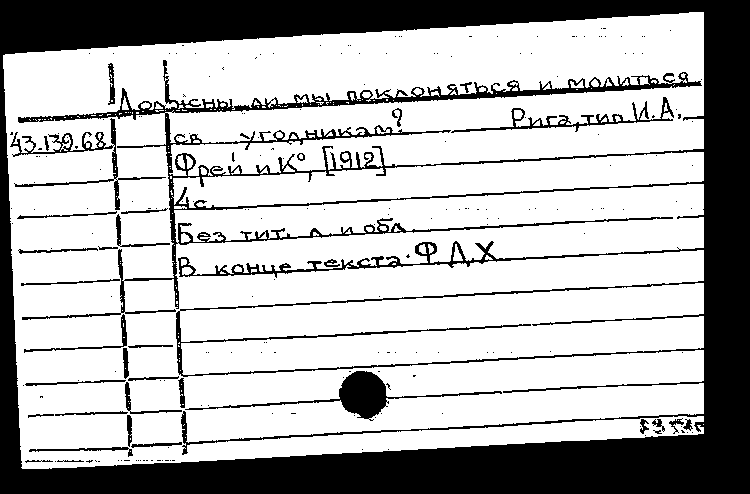 Должны ли мы поклоняться и молиться
43.139.68 св угодникам? Рига, тип И.А.
Фрей и К°, [1912].
4с.
Без тит. л и обл.
В конце текста: Ф Д. Х